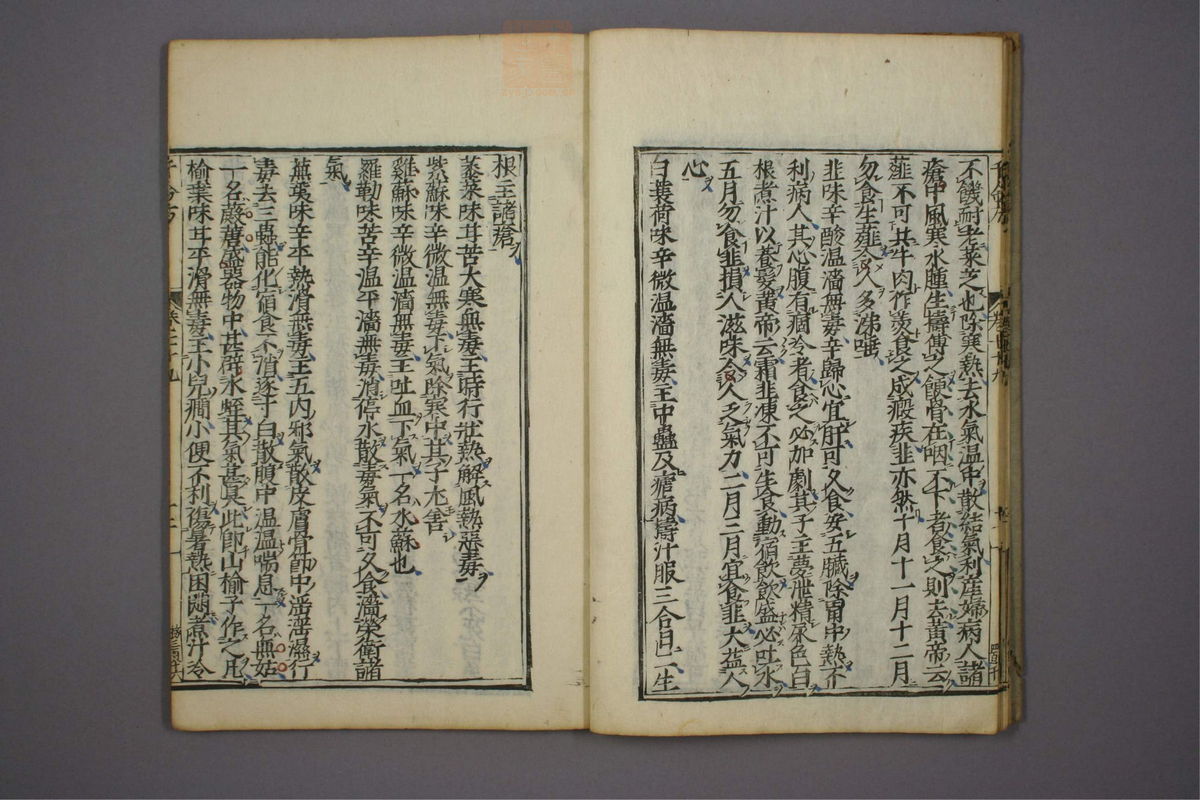 不饑耐老菜芝也除寒熱去水氣温中散結氣利産婦病人諸
瘡中風寒水腫生擣傅之鯁骨在咽不下者食之則去黄帝云
薤不可共牛肉作羹食之成瘕疾韭亦然十月十一月十二月
勿食生薤令人多涕唾
韭味辛酸温濇無毒辛歸心宜肝可久食安五臓除胃中熱不
利病人其心腹有痼冷者食之必加劇其子主夢泄精尿色白
根煮汁以養髪黄帝云霜韭凍不可生食動宿飲飲盛必吐水
五月勿食韭損人滋味令人乏氣力二月三月宜食韭大益人
心
白蘘荷味辛微温濇無毒主中蠱及瘧病擣汁服三合日二生
根主諸瘡
菾菜味甘苦大寒無毒主時行壯熱解風熱惡毒
紫蘇味辛微温無毒下氣除寒中其子尤善
雞蘇味辛微温濇無毒主吐血下氣一名水蘇也
羅勒味苦辛温平濇無毒消停水散毒氣不可久食濇榮衛諸
氣
蕪荑味辛平熱滑無毒主五内邪氣散皮膚骨節中淫淫濕行
毒去三蟲能化宿食不消逐寸白散腹中温温喘息一名無姑
一名䕋䕮盛器物中甚辟水蛭其氣甚臭此即山榆子作之
榆葉味甘平滑無毒主小兒癎小便不利傷暑熱困悶煮汁冷